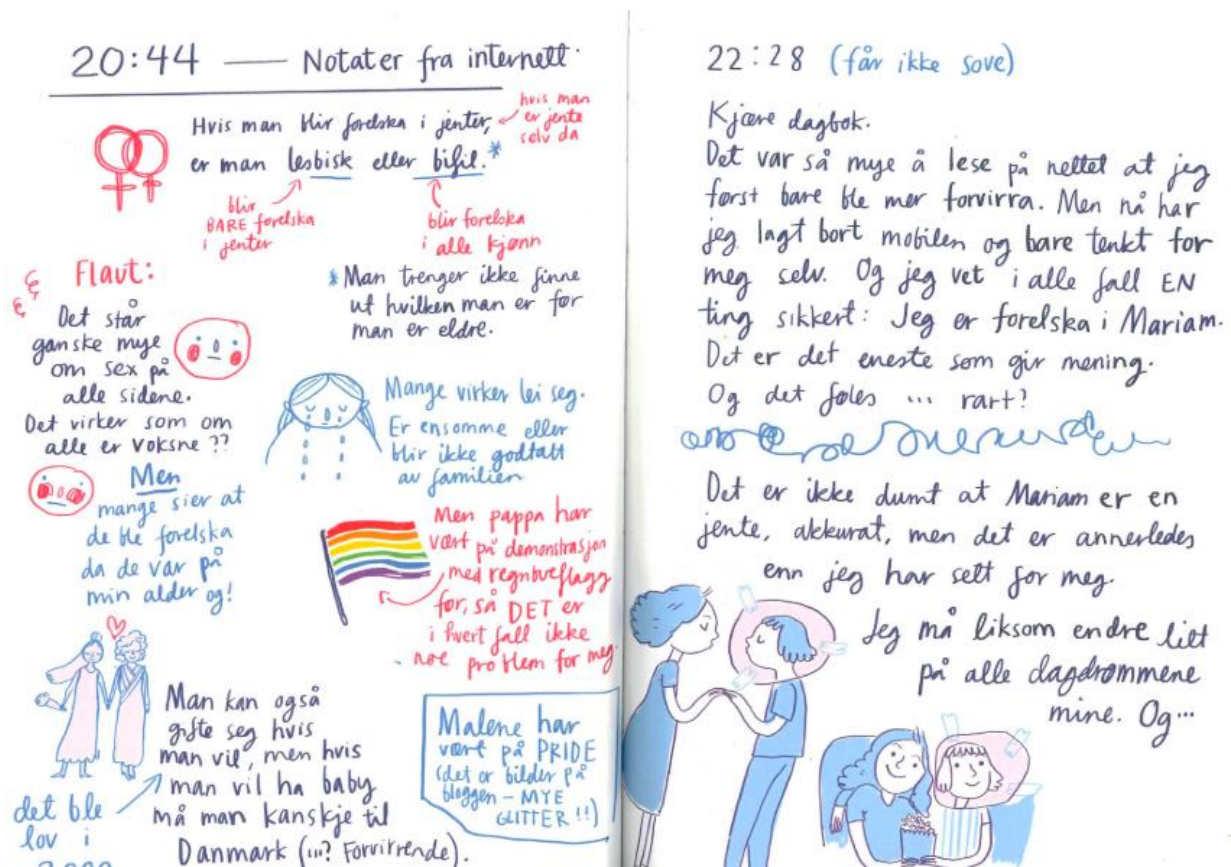 20:44 — Notater fra internett
Hvis man blir forelska i jenter,
hvis man
er jente
selv da
er man lesbisk eller bifil.*
blir
BARE forelska
i jenter
blir forelska
i alle kjønn
*Man trenger ikke finne
ut hvilken man er før
man er eldre.
Flaut:
Det står
ganske mye
om sex på
alle sidene.
Det virker som om
alle er voksne ??
Men
mange sier at
de ble forelska
da de var på
min alder og!
Mange virker lei seg.
Er ensomme eller
blir ikke godtatt
av familien
Men pappa har
vært på demonstrasjon
med regnbueflagg
før, så DET er
i hvert fall ikke
noe problem for meg.
Man kan også
gifte seg hvis
man vil, men hvis
man vil ha baby
må man kanskje til
Danmark (...? Forvirrende).
det ble
lov i
Malene har
vært på PRIDE
(det er bilder på
bloggen - MYE
GLITTER !!)
22:28 (får ikke sove)
Kjære dagbok.
Det var så mye å lese på nettet at jeg
først bare ble mer forvirra. Men nå har
jeg lagt bort mobilen og bare tenkt for
meg selv. Og jeg vet i alle fall EN
ting sikkert: Jeg er forelska i Mariam.
Det er det eneste som gir mening.
Og det føles ... rart?
Det er ikke dumt at Mariam er en
jente, akkurat, men det er annerledes
enn jeg har sett for meg.
Jeg må liksom endre litt
på alle dagdrømmene
mine. Og...